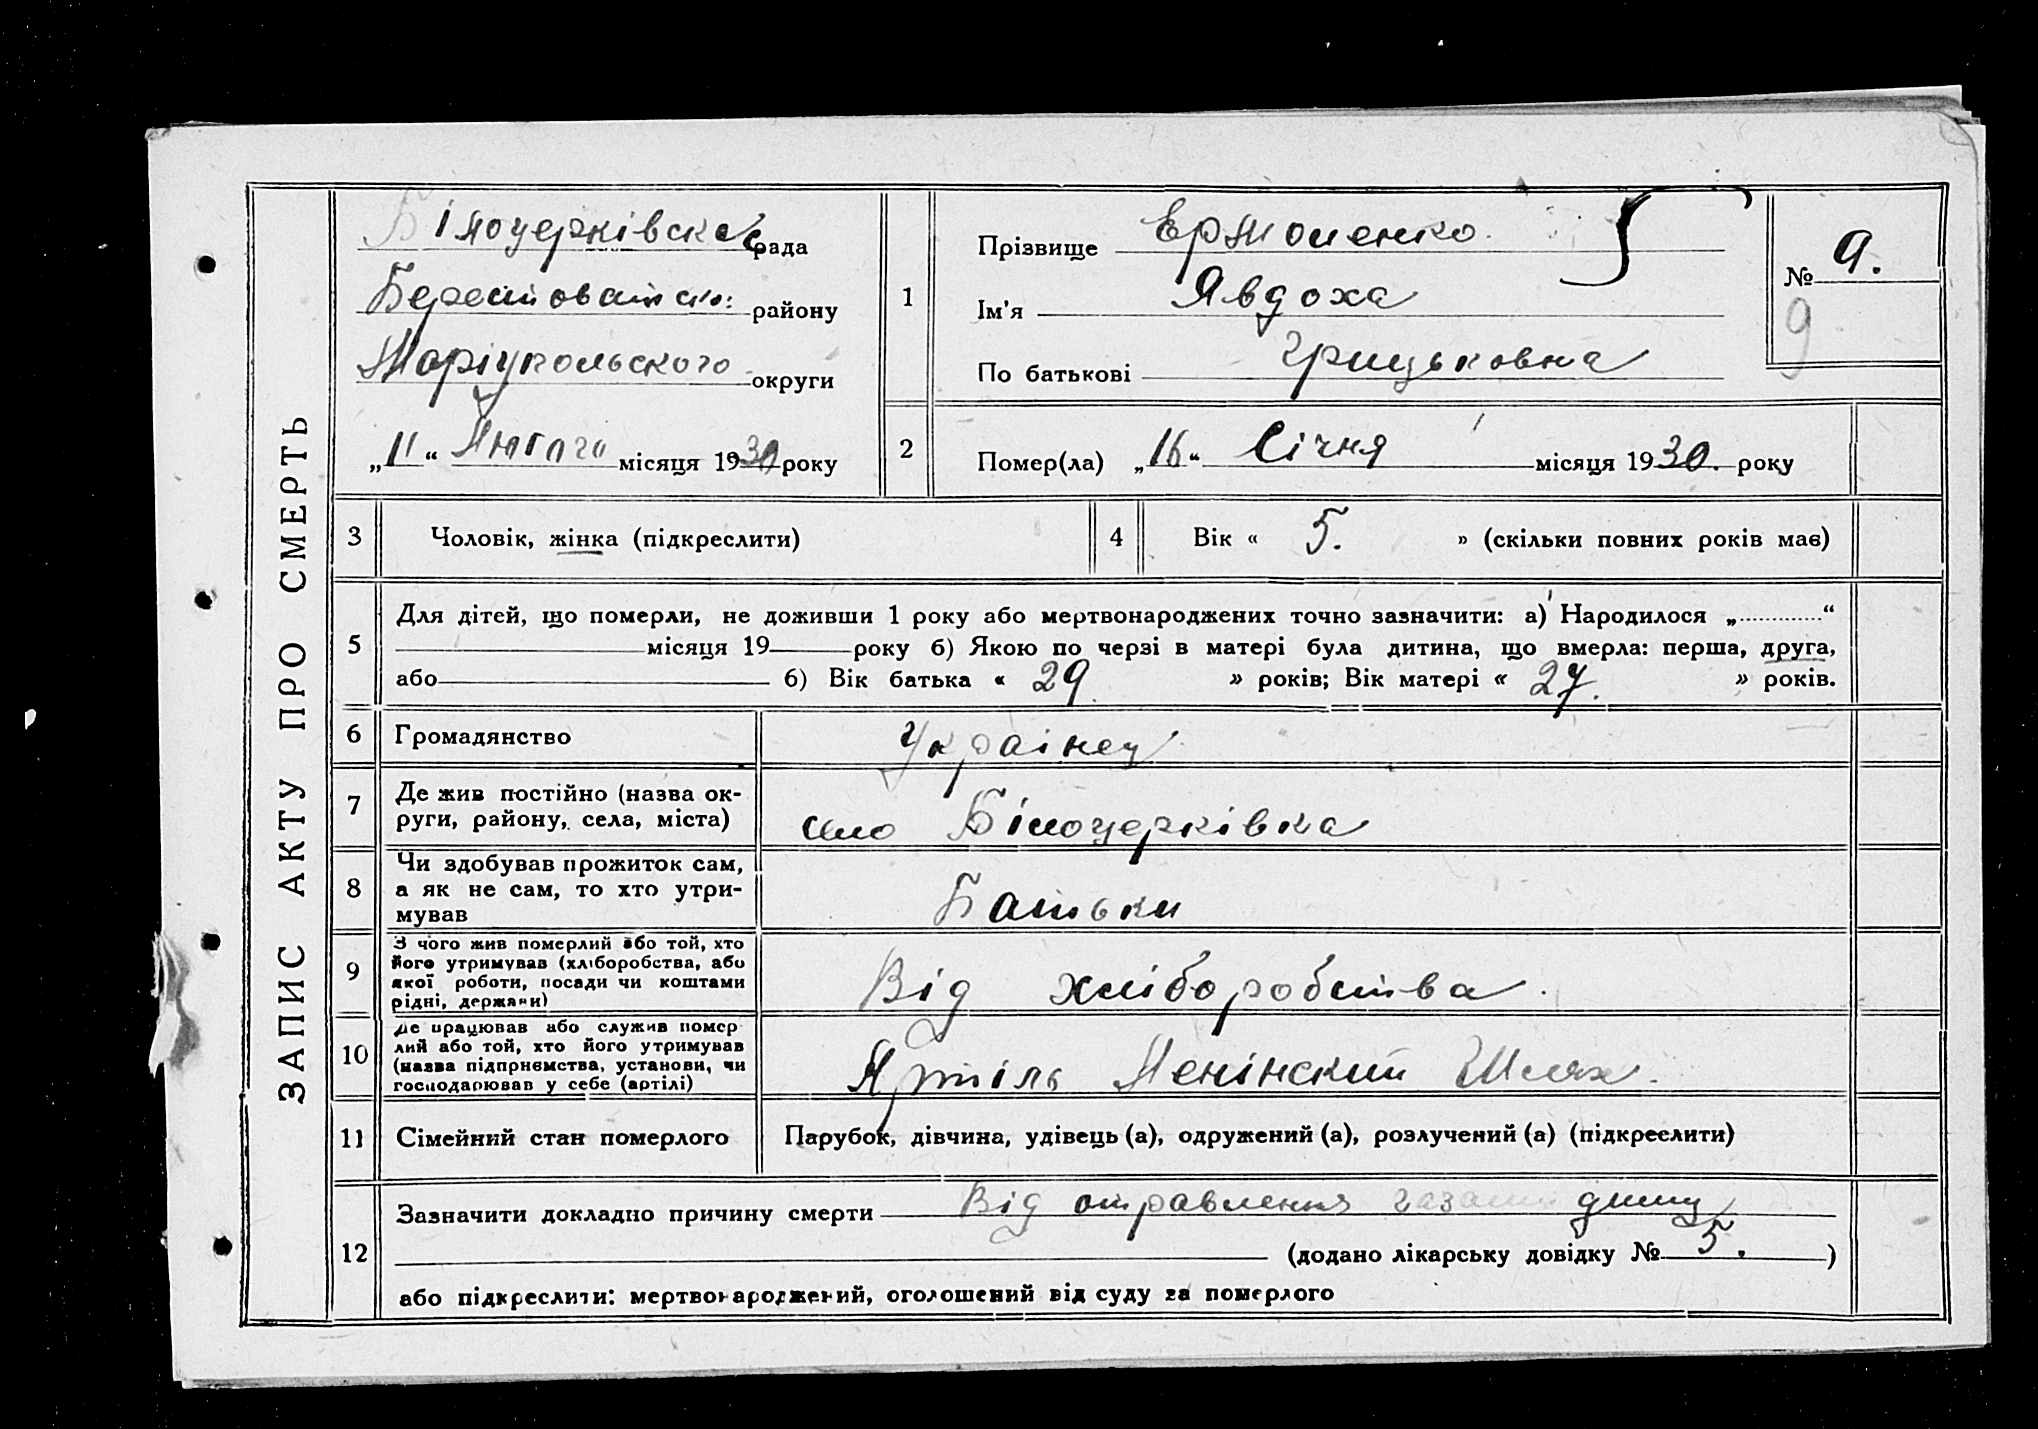 ЗАПИС АКТУ ПРО СМЕРТЬ
Білоцерківська рада
Берестоватско: району
Маріупольського округи
„11“ Лютого місяця 1930 року
1
Прізвище
Ім'я Явдоха
По батькові Грицьковна
№ 9.
9
2
Помер(ла) „16“ Січня місяця 1930. року
3
Чоловік, жінка (підкреслити)
4
Вік « 5. » (скільки повних років має)
5
Для дітей, що померли, не доживши 1 року або мертвонароджених точно зазначити: а) Народилося „ “
місяця 19 року б) Якою по черзі в матері була дитина, що вмерла: перша, друга,
або б) Вік батька « 29 » років; Вік матері « 27. » років.
6
Громадянство
Українец
7
Де жив постійно (назва ок-
руги, району, села, міста)
село Білоцерківка
8
Чи здобував прожиток сам,
а як не сам, то хто утри-
мував
Батьки
9
З чого жив померлий або той, хто
його утримував (хліборобства, або
якої роботи, посади чи коштами
рідні, держави)
Від хліборобства.
10
Де працював або служив помер-
лий або той, хто його утримував
(назва підприємства, установи, чи
господарював у себе (артілі)
Артіль Ленінский Шлях.
11
Сімейний стан померлого
Парубок, дівчина, удівець (а), одружений (а), розлучений (а) (підкреслити)
12
Зазначити докладно причину смерти Від отравлення газами
(додано лікарську довідку № 5. )
або підкреслити: мертвонароджений, оголошений від суду за померлого